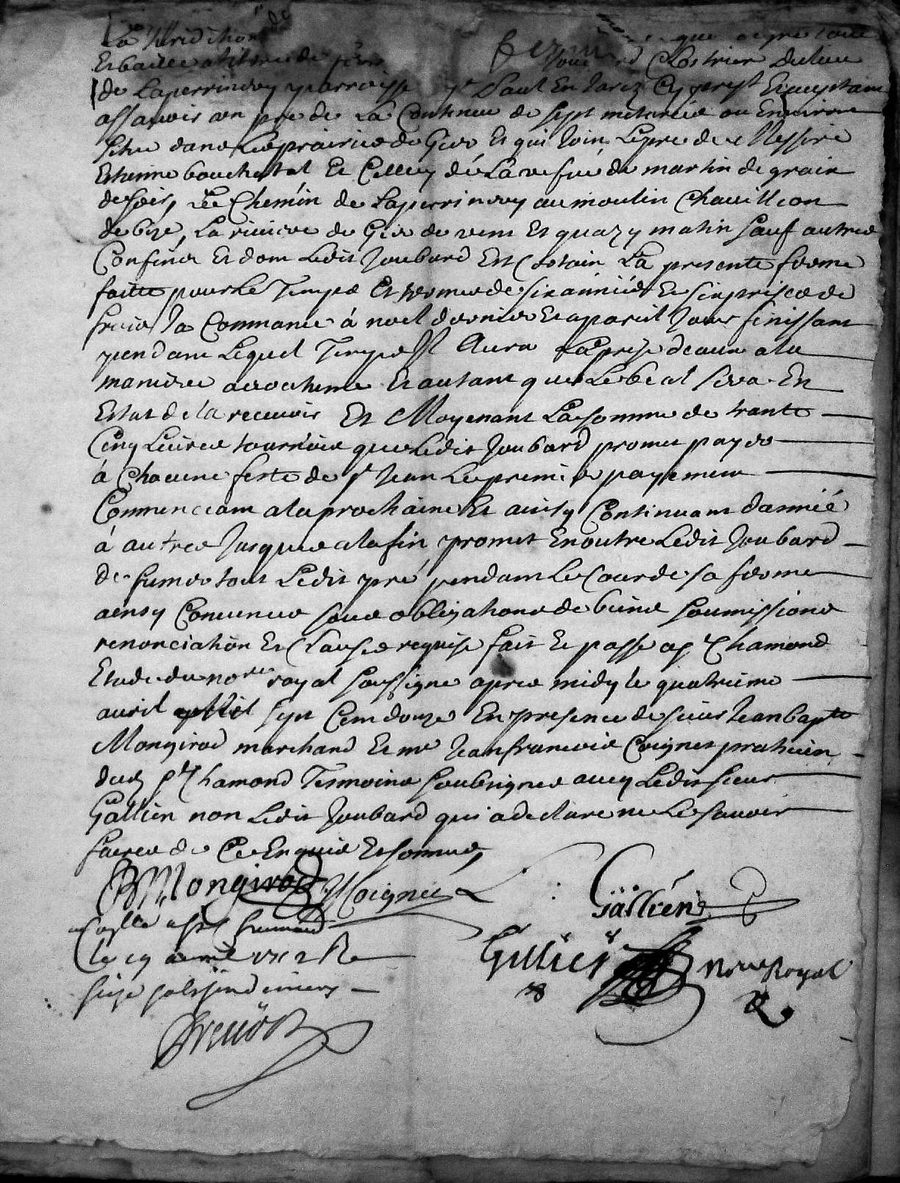 La Juridiction de
Et baille a titre de ferme Joubard Clostrier du lieu
de Laperrinery parroisse St Paul En Jarez Cy prest Et aceptam
assavoir un pré de La Contenue de sept meterée ou Environ
situé dans Les prairie de Gier Et qui Join Le pré de Messire
Estienne bouchetal Et Celluy de La vefue de martin degrain
de soir, Le Chemin de Laperrinery au moulin Chavillion
de bize, La riviere de Gier de vent Et quazy matin sauf autres
Confins Et dom Ledit Joubard Est Certain La presente ferme
faitte pour Le Temps Et terme de six année Et six prises de
fruis Ja Commancé à noel dernier Et a pareil Jour finissant
pendam Lequel Temps Jl Aura La prise deaux a la
maniere acoutumé Et autant que Le beal sera En
Estat de la recevoir Et Moyenant La somme de trante
Cinq Livres tournois que Ledit Joubard promet payer
à Chacune feste de St Jean Le premier payement
Commenceam a la prochaine Et ainsy Continuant dannée
à autre Jusques a la fin promet En outre Ledit Joubard
de fumer tout Ledit pré pendam Le Cour de sa ferme
ainsy Convenue sous obligations de biens soumissions
renonciation Et Clauses requise fait Et passé a St Chamond
Etude du nore royal soussigné apres midy Le quatrieme
avril sept Cem douze En presence de sieur Jean bapte
Mongirod marchand Et me Jean francois Coignet praticien
dud St Chamond Temoins soubsignes avec Ledit sieur
Gallien non Ledit Joubard qui a declaré ne Le savoir
faire de Ce Enquis Et sommé,
Mongirod Coignet Gallien
Gillier Nore Royal